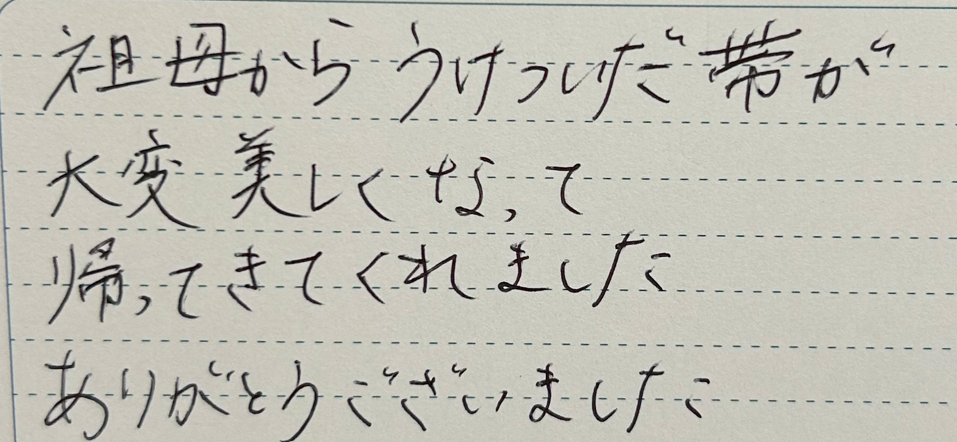 祖母からうけついだ帯が
大変美しくなって
帰ってきてくれました
ありがとうございました